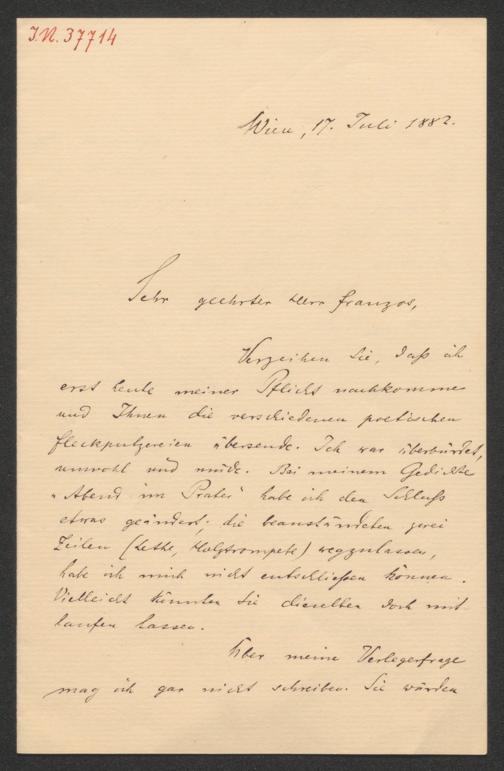 I.N. 37714
Wien, 17. Juli 1882.
Sehr geehrter Herr Franzos,
Verzeihen Sie, daß ich
erst heute meiner Pflicht nachkomme
und Ihnen die verschiedenen poetischen
Fleckputzereien übersende. Ich war überbürdet,
unwohl und müde. Bei meinem Gedichte
"Abend im Prater" habe ich den Schluß
etwas geändert; die beanständeten zwei
Zeilen (Lethe, Holztrompete) wegzulassen,
habe ich mich nicht entschließen können.
Vielleicht könnten Sie dieselben doch mit-
laufen lassen.
Über meine Verlegerfrage
mag ich gar nicht schreiben. Sie würden